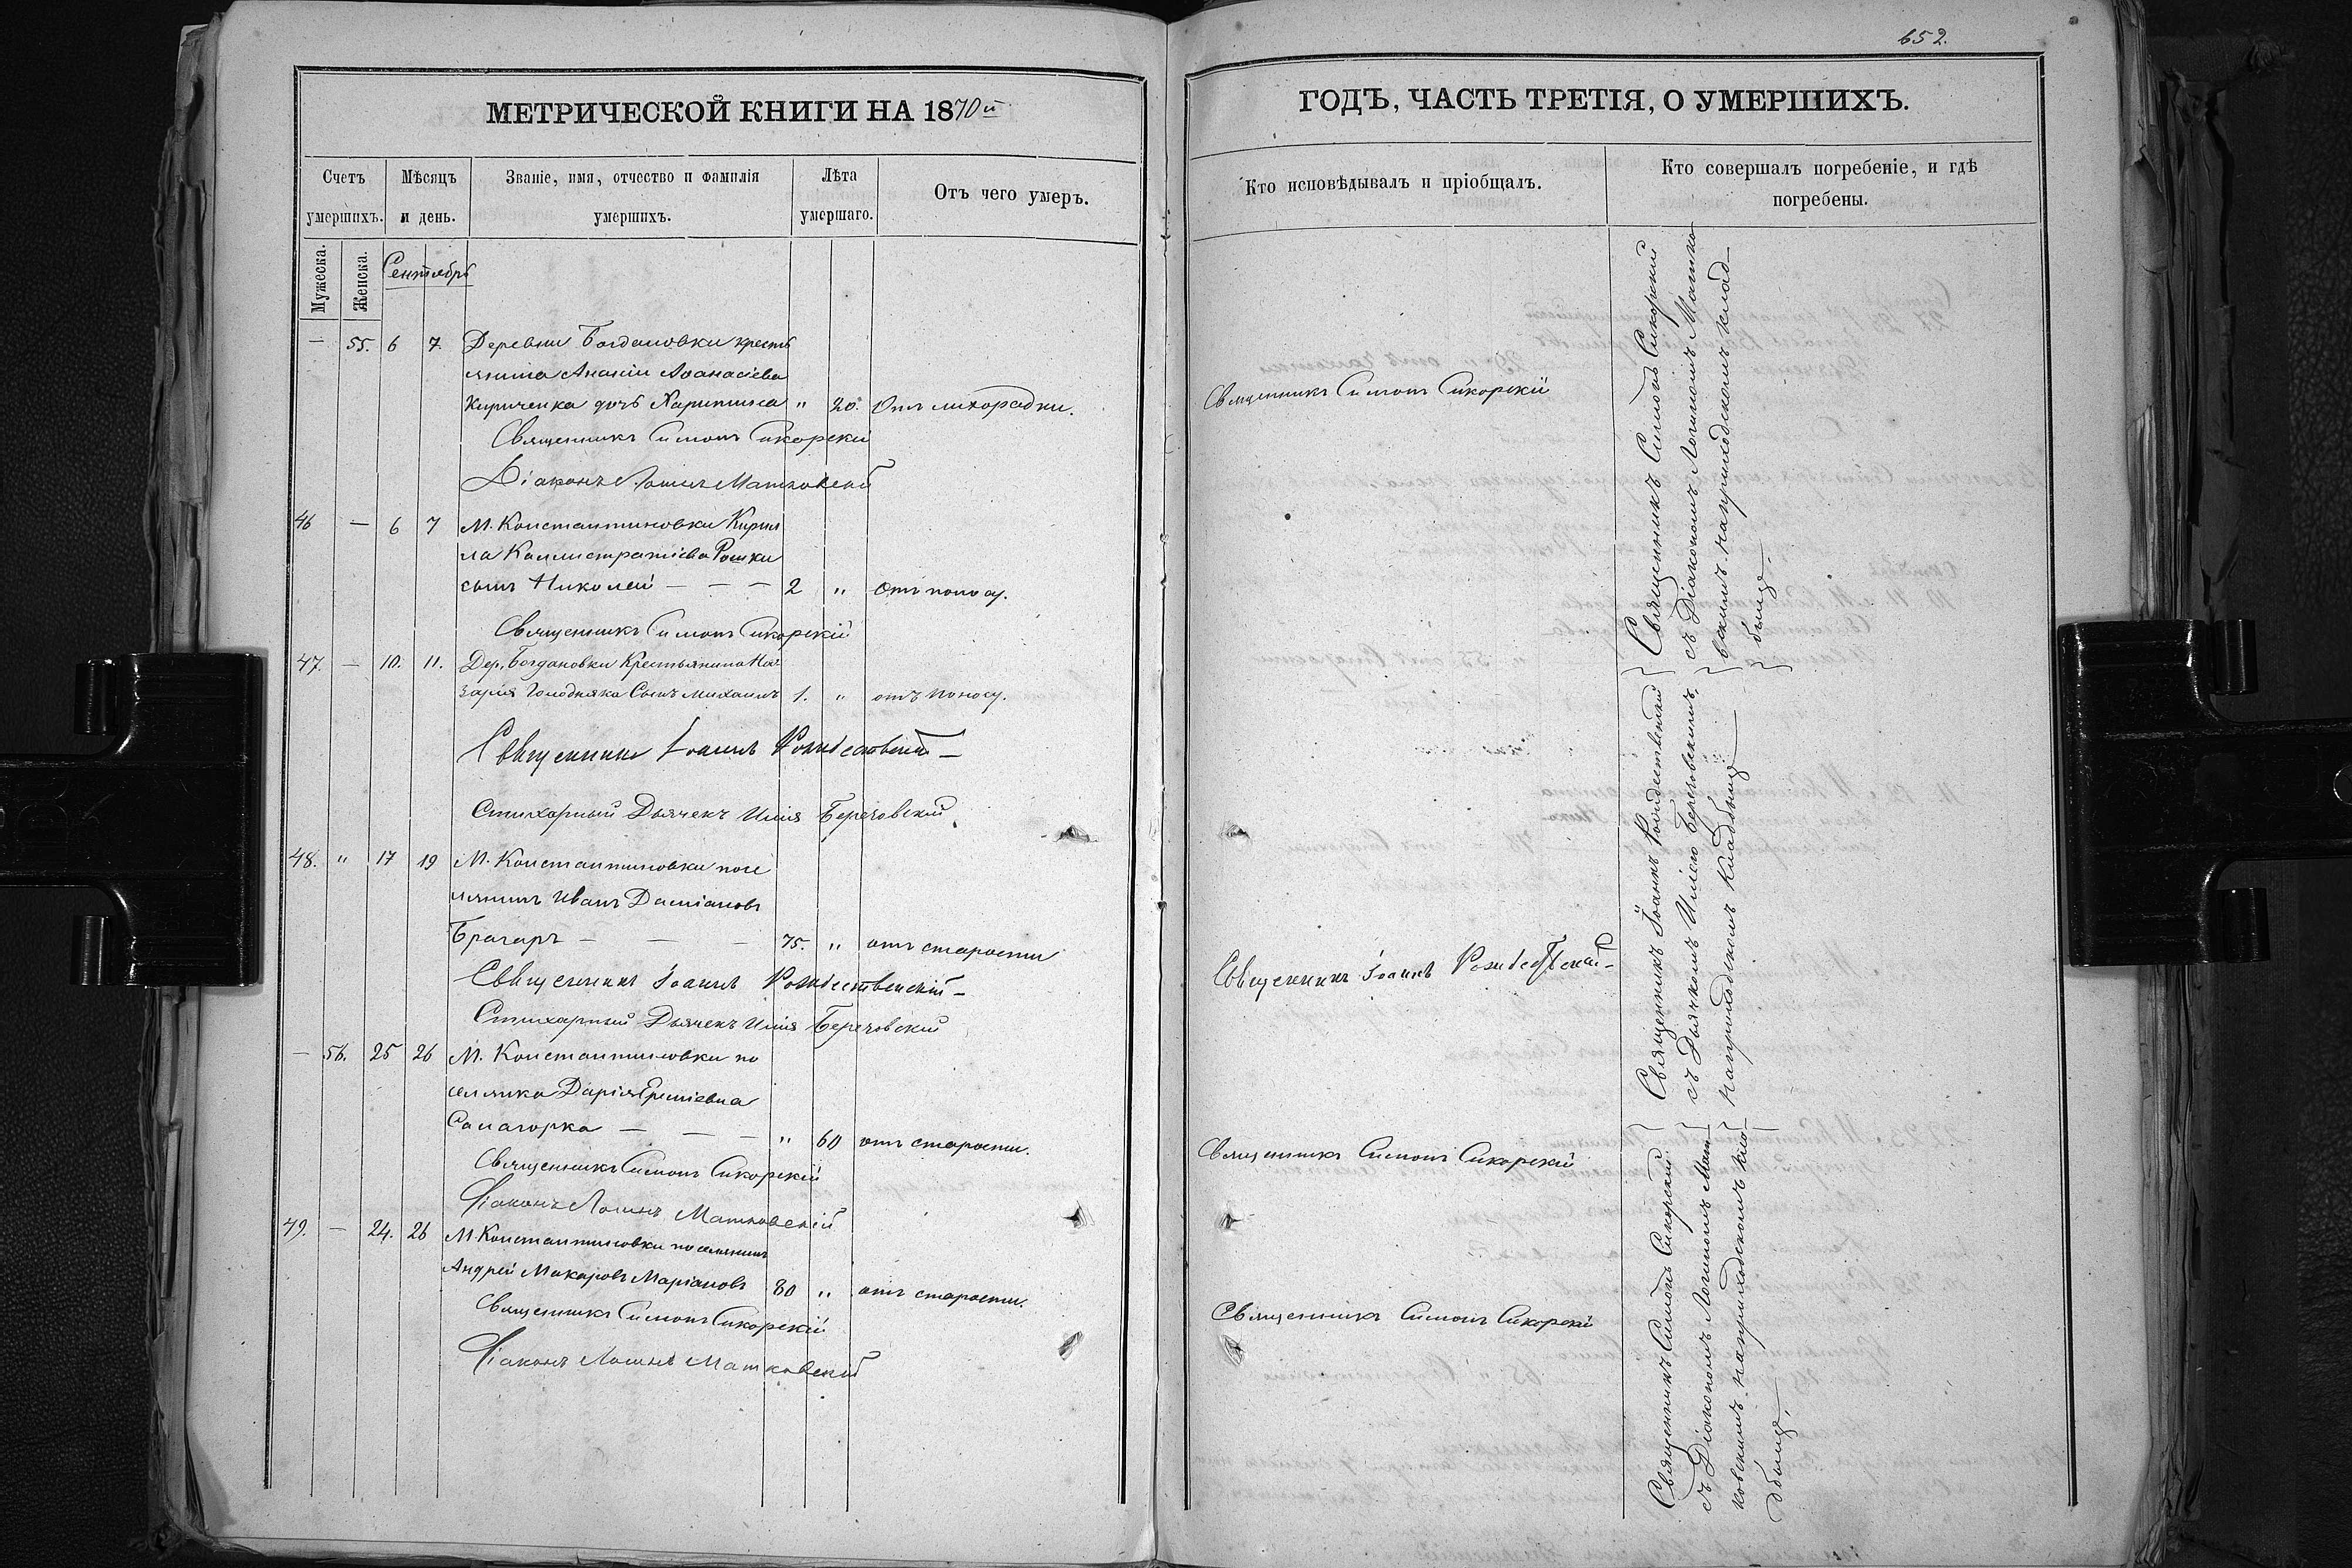 МЕТРИЧЕСКОЙ КНИГИ НА 1870й
Счетъ умершихъ.
Мѣсяцъ и день.
Званіе, имя, отчество и фамилія умершихъ.
Лѣта умершаго.
Отъ чего умеръ.
Мужеска.
Женска.
Сентябрь
— 55. 6 7. Деревни Богдановки кресть
янина Ананіи Аѳанасіева
Кириченка дочь Харитина " 20. Отъ лихорадки.
Священникъ Симонъ Сикорскій
Діаконъ Логинъ Матковскій
46 — 6 7 М. Константиновки Кирил
ла Каллистратіева Рошки
сынъ Николай — — — 2 " Отъ поносу.
Священникъ Симонъ Сикорскій
47. — 10. 11. Дер. Богдановки Крестьянина На
зарія Голодняка Сынъ Михаилъ 1. " отъ поносу.
Священникъ Іоаннъ Рождественскій —
Стихарный Дьячекъ Илія Березовскій
48. " 17 19 М. Константиновки посе
лянинъ Иванъ Даміановъ
Брагарь — — — 75. " отъ старости
Священникъ Іоаннъ Рождественскій —
Стихарный Дьячекъ Илія Березовскій
— 56. 25 26 М. Константиновки по
селянка Дарія Ереміевна
— — — " 60 отъ старости.
Священникъ Симонъ Сикорскій
Діаконъ Логинъ Матковскій
49. — 24. 26 М. Константиновки поселянинъ
Андрей Макаровъ Маріановъ 80 " отъ старости.
Священникъ Симонъ Сикорскій
Діаконъ Логинъ Матковскій
652.
ГОДЪ, ЧАСТЬ ТРЕТІЯ, О УМЕРШИХЪ.
Кто исповѣдывалъ и пріобщалъ.
Кто совершалъ погребеніе, и гдѣ
погребены.
Священникъ Симонъ Сикорскій
Священникъ Іоаннъ Рождественскій —
Священникъ Симонъ Сикорскій
Священникъ Симонъ Сикорскій
Священникъ Симонъ Сикорскій
съ Діакономъ Логиномъ Матко
вскимъ. на приходскомъ клад—
бищѣ.
Священникъ Іоаннъ Рождественскій
съ Дьячкомъ Иліею Березовскимъ,
на приходскомъ кладбищѣ —
Священникъ Симонъ Сикорскій
съ Діакономъ Логиномъ Мат
ковскимъ. на приходскомъ кла
дбищѣ.